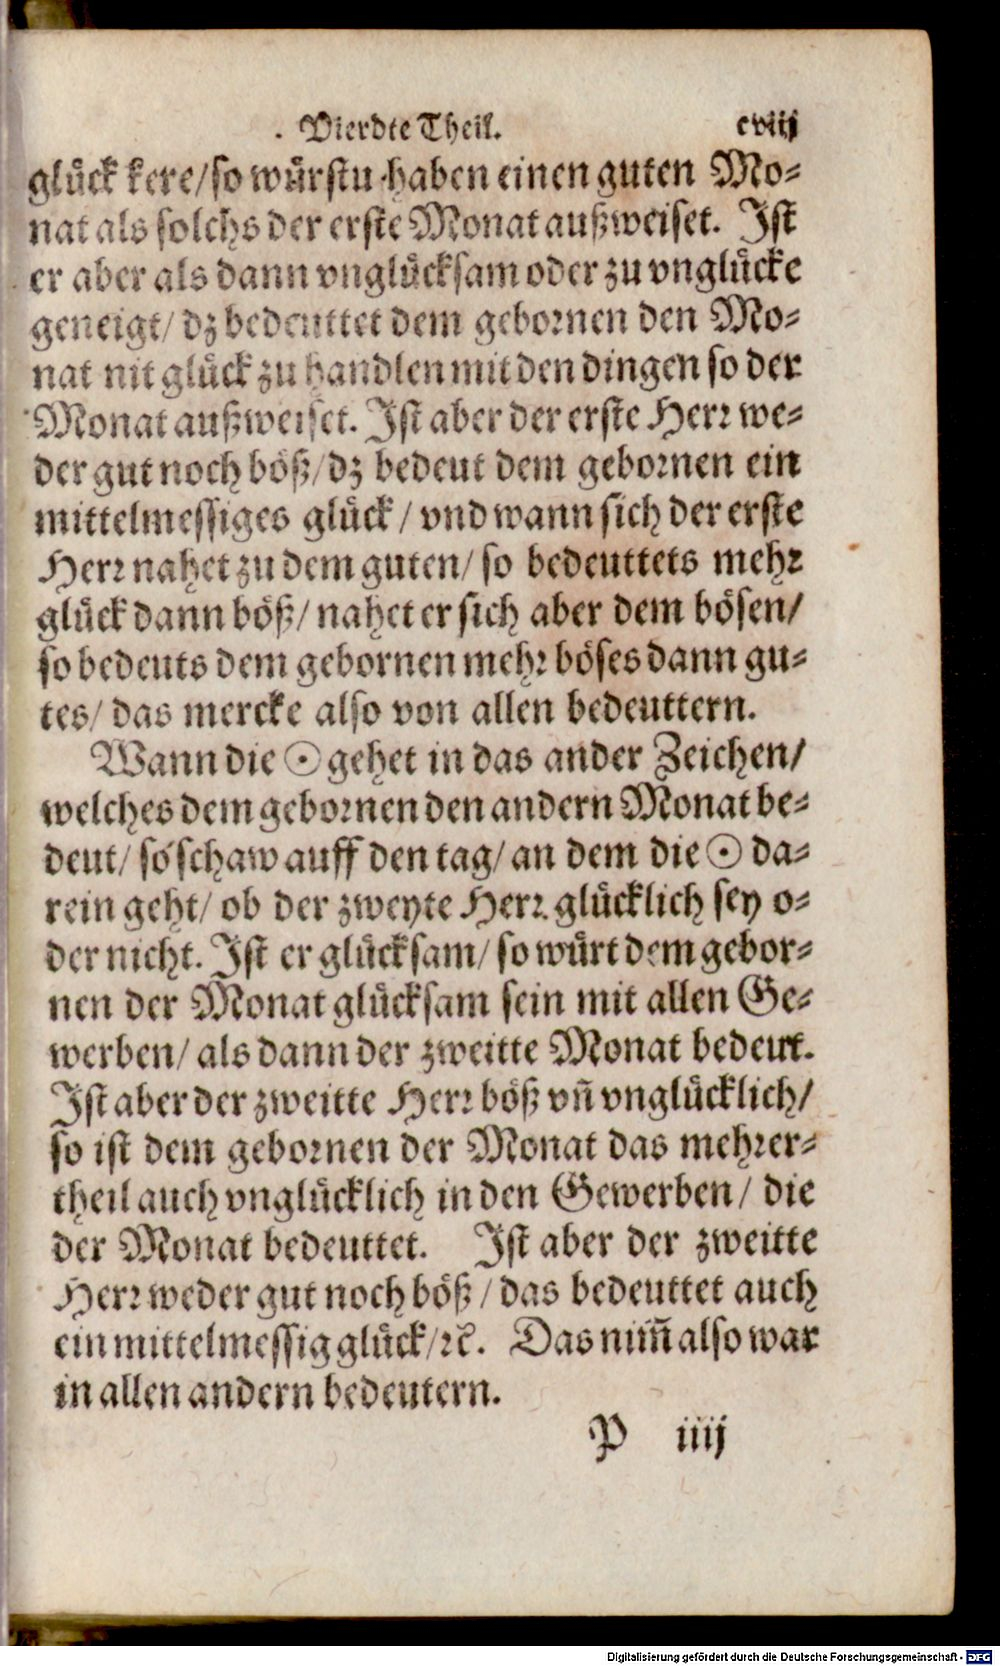 Vierdte Theil. cviij
glück kere/ so würstu haben einen guten Mo-
nat als solchs der erste Monat außweiset. Ist
er aber als dann vnglücksam oder zu vnglücke
geneigt/ dz bedeuttet dem gebornen den Mo-
nat nit glück zu handlen mit den dingen so der
Monat außweiset. Ist aber der erste Herr we-
der gut noch böß/ dz bedeut dem gebornen ein
mittelmessiges glück/ vnd wann sich der erste
Herr nahet zu dem guten/ so bedeuttets mehr
glück dann böß/ nahet er sich aber dem bösen/
so bedeuts dem gebornen mehr böses dann gu-
tes/ das mercke also von allen bedeuttern.
Wann die ☉ gehet in das ander Zeichen/
welches dem gebornen den andern Monat be-
deut/ so schaw auff den tag/ an dem die ☉ da-
rein geht/ ob der zweyte Herr glücklich sey o-
der nicht. Ist er glücksam/ so würt dem gebor-
nen der Monat glücksam sein mit allen Ge-
werben/ als dann der zweitte Monat bedeut.
Ist aber der zweitte Herr böß vñ vnglücklich/
so ist dem gebornen der Monat das mehrer-
theil auch vnglücklich in den Gewerben/ die
der Monat bedeuttet. Ist aber der zweitte
Herr weder gut noch böß/ das bedeuttet auch
ein mittelmessig glück/ ꝛc. Das nim̃ also war
in allen andern bedeutern.
P iiij
Digitalisierung gefördert durch die Deutsche Forschungsgemeinschaft - DFG